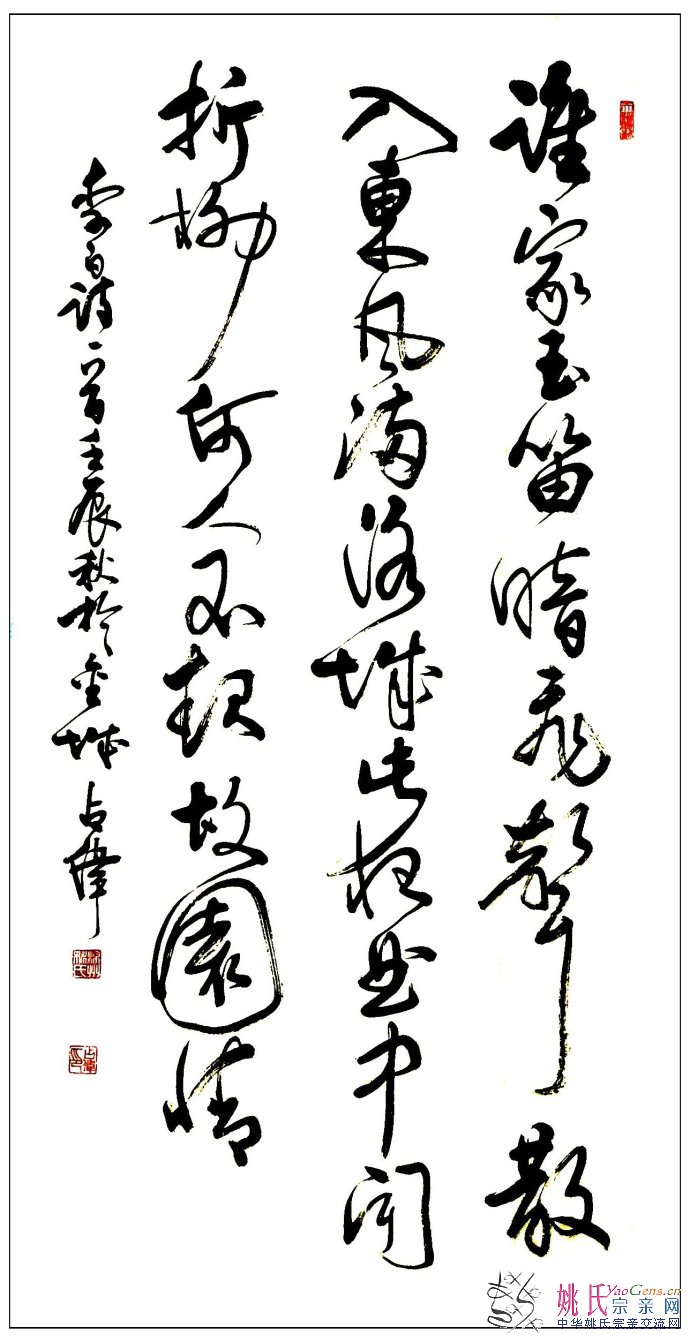 誰家玉笛暗飛聲散
入東風滿洛城此夜曲中聞
折柳何人不起故園情
李白詩一首壬辰秋於金城占
姚氏 YaoGens.cn
宗亲网
中华姚氏宗亲交流网